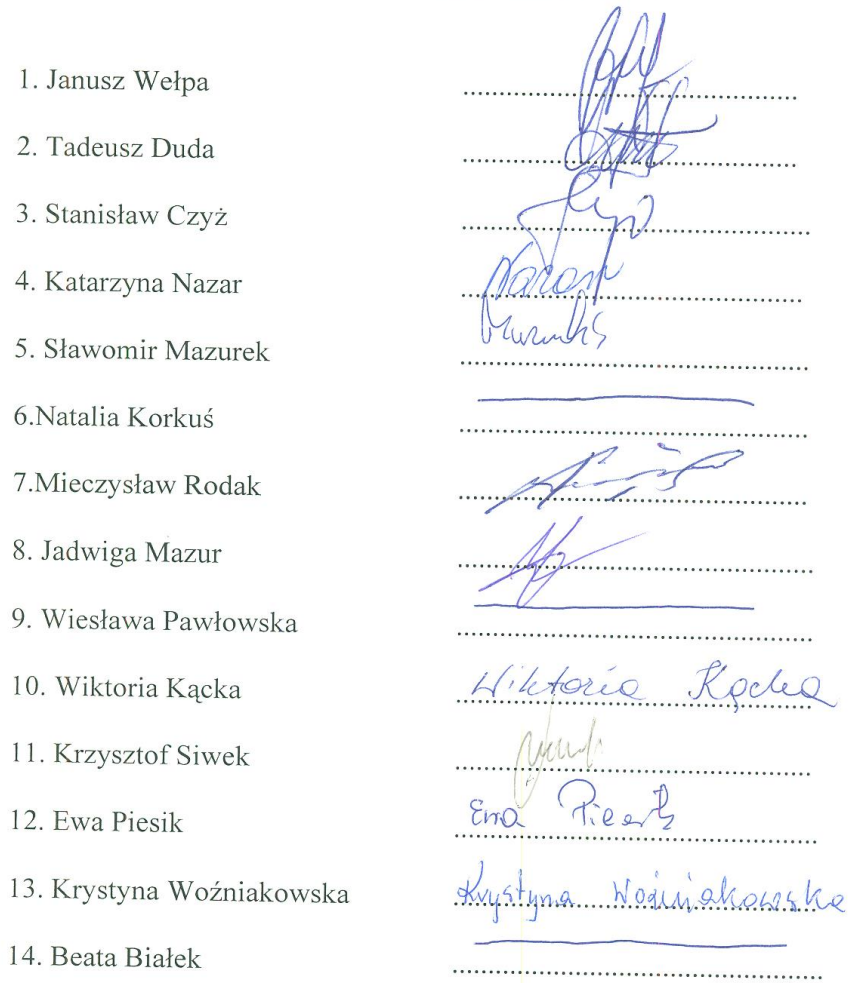 1. Janusz Wełpa
2. Tadeusz Duda
3. Stanisław Czyż
4. Katarzyna Nazar Nazar
5. Sławomir Mazurek
6.Natalia Korkuś
7.Mieczysław Rodak
8. Jadwiga Mazur
9. Wiesława Pawłowska
10. Wiktoria Kącka Wiktoria Kącka
11. Krzysztof Siwek
12. Ewa Piesik Ewa Piesik
13. Krystyna Woźniakowska Krystyna Woźniakowska
14. Beata Białek